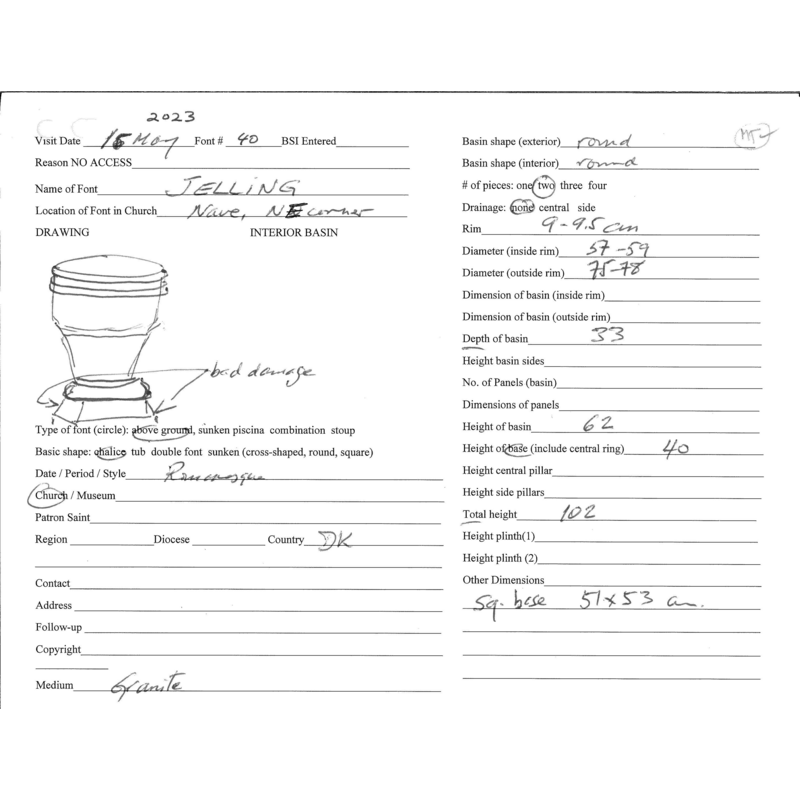 2023
Visit Date 15 May Font # 40 BSI Entered
Reason NO ACCESS
Name of Font JELLING
Location of Font in Church Nave, NE corner
DRAWING INTERIOR BASIN
bad damage
Type of font (circle): above ground, sunken piscina combination stoup
Basic shape: chalice tub double font sunken (cross-shaped, round, square)
Date / Period / Style Romanesque
Church / Museum
Patron Saint
Region Diocese Country DK
Contact
Address
Follow-up
Copyright
Medium Granite
Basin shape (exterior) round
Basin shape (interior) round
# of pieces: one two three four
Drainage: none central side
Rim 9-9.5 cm
Diameter (inside rim) 57-59
Diameter (outside rim) 75-78
Dimension of basin (inside rim)
Dimension of basin (outside rim)
Depth of basin 33
Height basin sides
No. of Panels (basin)
Dimensions of panels
Height of basin 62
Height of base (include central ring) 40
Height central pillar
Height side pillars
Total height 102
Height plinth(1)
Height plinth (2)
Other Dimensions
Sq. base 51x53 cm.